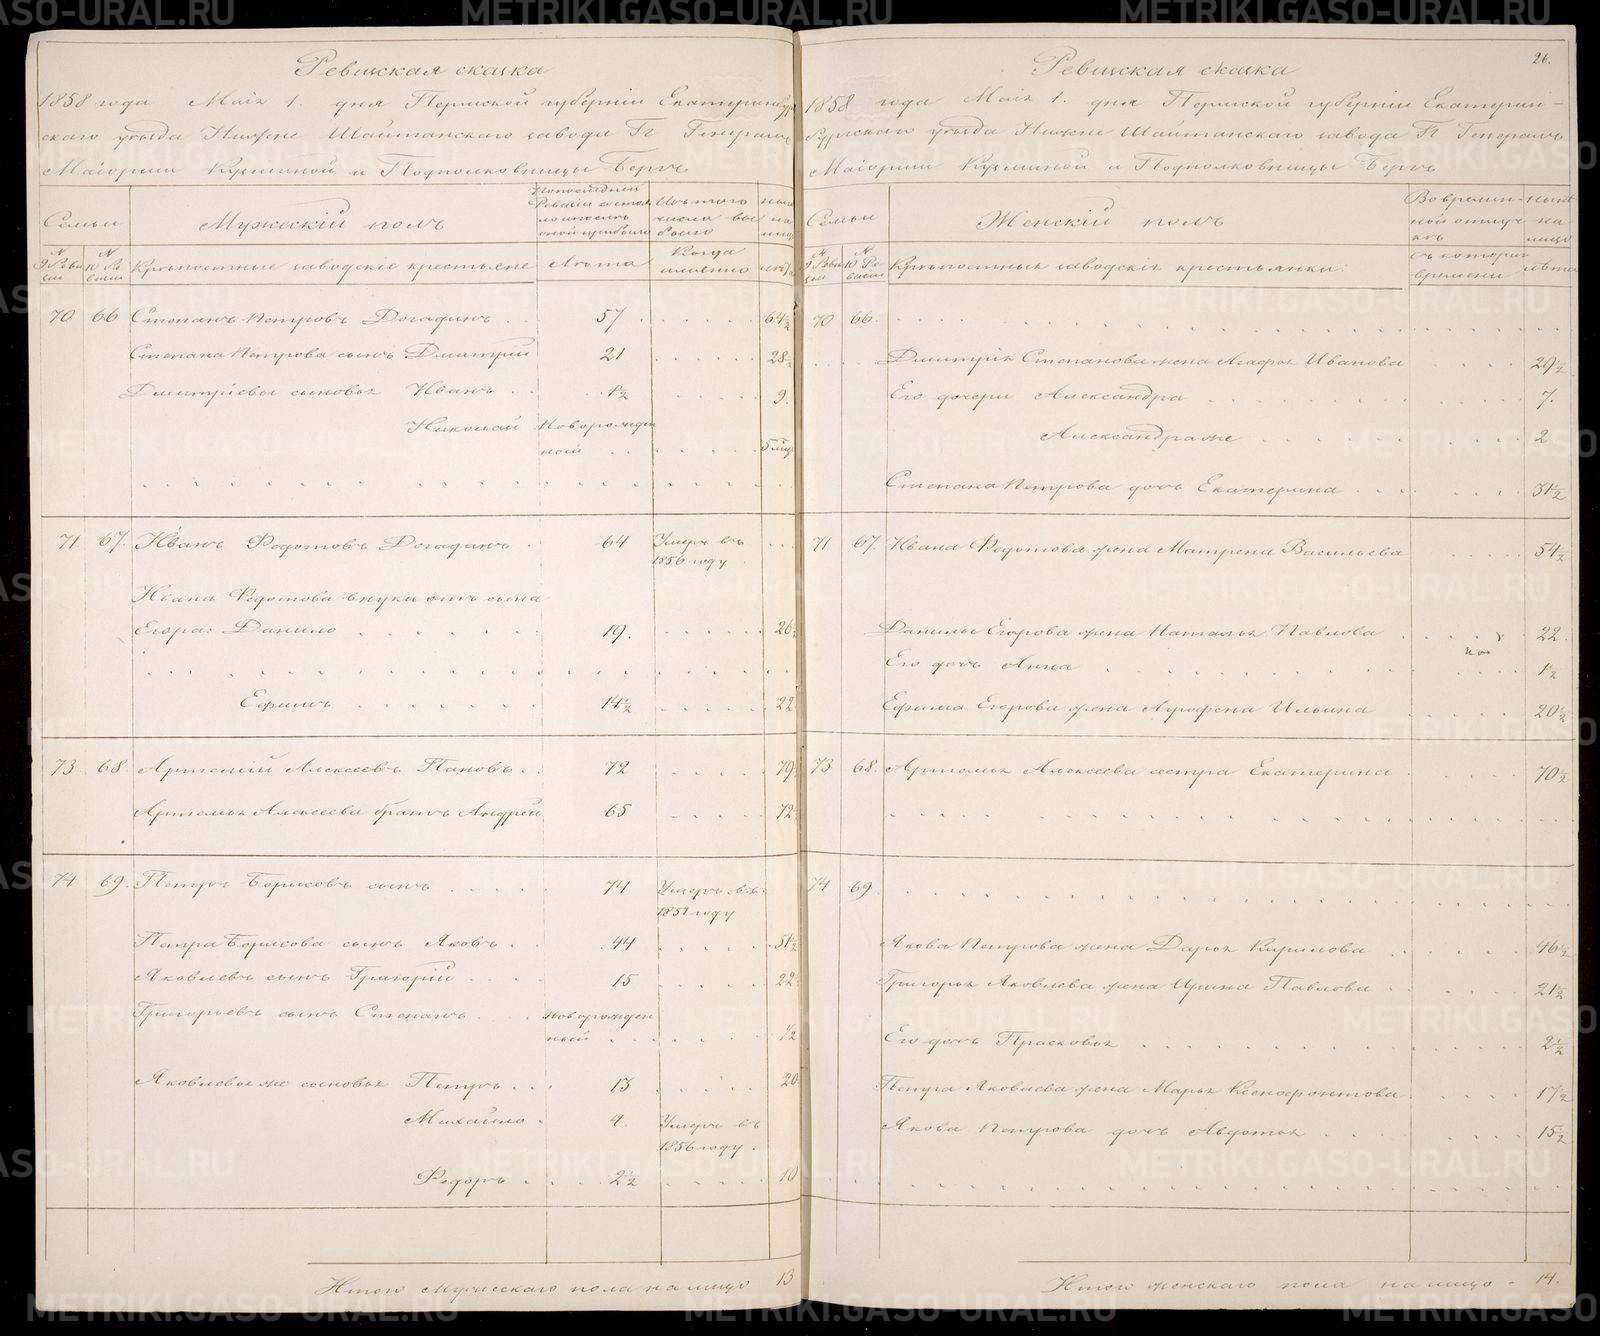 Ревижская сказка
1858 года Маія 1. дня Пермской губерніи Екатеринбур
скаго уѣзда Нижне Шайтанскаго завода Гг Генералъ
Маіорши Кузьминой и Подполковницы Бергъ
Семьи
Мужескій полъ
Ревизіи
Изъ того числа вы
были
на
лицо
№ 9 Реви
зіи
№ 10 Ре
визіи
Крѣпостные заводскіе крестьяне
Лѣта
Когда
именно
лѣта
70 66 Степанъ Петровъ Догадинъ 57 64½
Степана Петрова сынъ Дмитрій 21 28
Дмитріевы сыновья Иванъ 1½ 9.
Николай Новорожден
ной 5 мѣц
71. 67. Иванъ Федотовъ Догадинъ 64 Умеръ въ
1856 году
Ивана Федотова внуки отъ сына
Егора: Данило 19. 26
Ефимъ 14½ 22
73 68. Артемій Алексеевъ Пановъ 72 79
Артемья Алексеева братъ Андрей 65 72
74 69. Петръ Борисовъ сынъ 74 Умеръ въ
1851 году
Петра Борисова сынъ Яковъ 44 51½
Яковлевъ сынъ Григорій 15 22
Григорьевъ сынъ Степанъ Новорожден
ный ½
Яковлевы же сыновья Петръ 13 20
Михайло 4. Умеръ въ
1856 году.
Федоръ 2½ 10
Итого мужескаго пола на лицо 13
26.
Ревижская сказка
1858 года Маія 1. дня Пермской губерніи Екатерин-
бургскаго уѣзда Нижне Шайтанскаго завода Гг Генералъ
Маіорши Кузьминой и Подполковницы Бергъ
Семьи
Женскій полъ
Во времен-
ной отлуч
кѣ
нынѣ
на
лицо
№ 9 Реви
зіи
№ 10 Ре
визіи
Крѣпостныя заводскія крестьянки.
съ котораго
времени
лѣта
70 66.
Дмитрія Степанова жена Агафья Иванова 29½
Его дочери Александра 7.
Александра же 2
Степана Петрова дочь Екатерина 31½
71 67. Ивана Федотова жена Матрена Васильева 54½
Данилы Егорова жена Наталья Павлова 22
Его дочь Анна 1½
Ефима Егорова жена Аграфена Ильина 20½
73 68. Артемья Алексеева сестра Екатерина 70½
74 69.
Якова Петрова жена Дарья Кирилова 46½
Григорья Яковлева жена Ирина Павлова 21½
Его дочь Прасковья 2½
Петра Яковлева жена Марья Ксенофонтова 17½
Якова Петрова дочь Авдотья 15½
Итого женскаго пола на лицо - 14.
METRIKI.GASO-URAL.RU